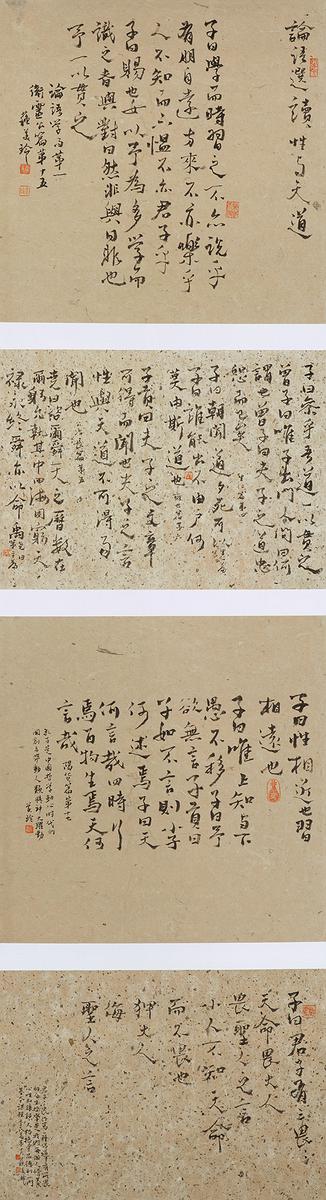 論語選讀 性与天道
子曰學而時習之不亦說乎
有朋自遠方來不亦樂乎
人不知而不慍不亦君子乎
子曰賜也女以予為多学而
識之者與對曰然非與曰非也
予一以貫之
論語学而第一
衛靈公篇第十五
子曰參乎吾道一以貫之
曾子曰唯子出門人問曰何
謂也曾子曰夫子之道忠
恕而已矣
子曰朝聞道夕死可矣
子曰誰能出不由戶何
莫由斯道也
子貢曰夫子之文章
可得而聞也夫子之言
性與天道不可得而
聞也
堯曰咨爾舜天之曆數在
爾躬允執其中四海困窮天
禄永終舜亦以命禹
子曰性相近也習
相遠也
子曰唯上知与下
愚不移子曰予
欲無言子貢曰
子如不言則小子
何述焉子曰天
何言哉四時行
焉百物生焉天何
言哉
陽貨篇第十七
子曰君子有三畏
天命畏大人
畏聖人之言
小人不知天命
而不畏也
狎大人
侮
聖人之言